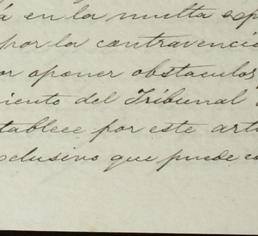 á en la multa esp
por la contravenció
or oponer obstaculos
miento del Tribunal
tablece por este arti
xclusivo que puede co